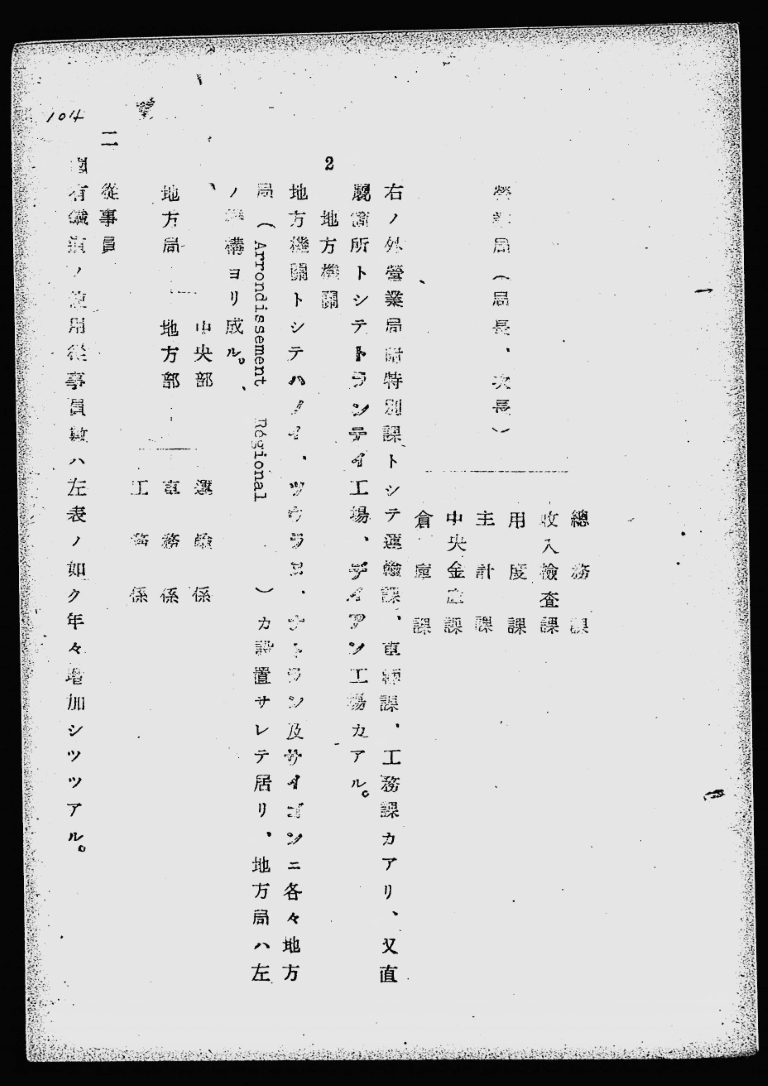 104
總務課
收入檢査課
用度課
主計課
中央金庫課
倉庫課
營業局（局長、次長）
右ノ外營業局ニ特別課トシテ運輸課、車輛課、工務課カアリ、又直
屬箇所トシテトランテイ工場、デイアン工場カアル。
2 地方機關
地方機關トシテハノイ、ツウラヌ、ナトラン及サイゴンニ各々地方
局（Arrondissement Régional）カ設置サレテ居リ、地方局ハ左
ノ機構ヨリ成ル。
中央部
地方局
地方部
運輸係
車務係
工務係
二 從事員
國有鐵道ノ使用從事員數ハ左表ノ如ク年々增加シツツアル。